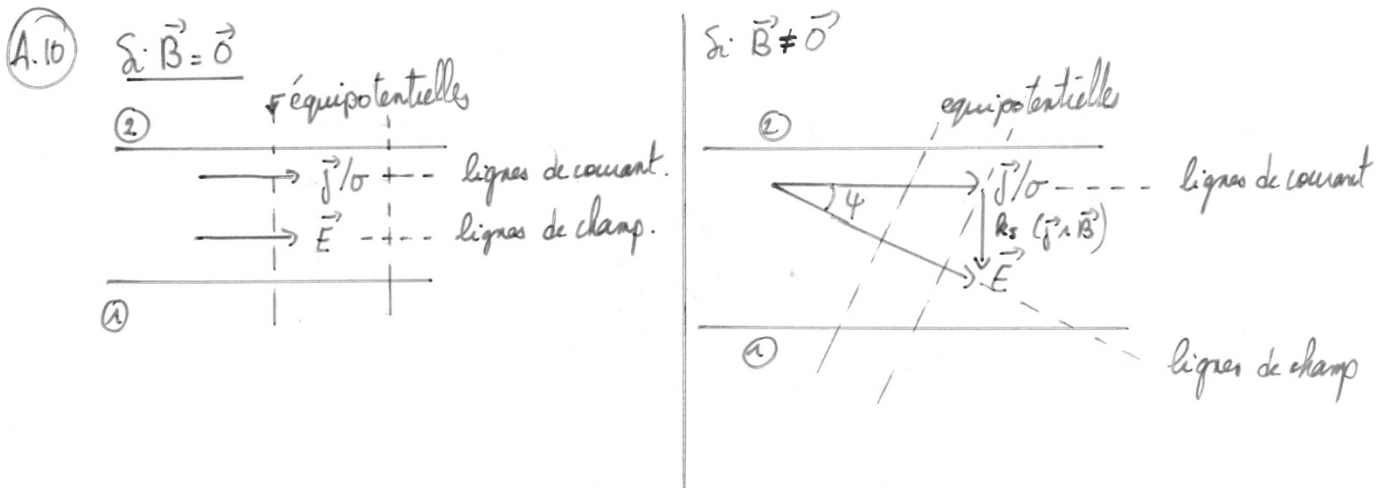 A.10
Si \vec{B} = \vec{0}
équipotentielles
②
\vec{j}/σ
lignes de courant.
\vec{E}
lignes de champ.
①
Si \vec{B} ≠ \vec{0}
equipotentielles
②
\vec{j}/σ
lignes de courant
ψ
(\vec{j} ∧ \vec{B})
\vec{E}
①
lignes de champ